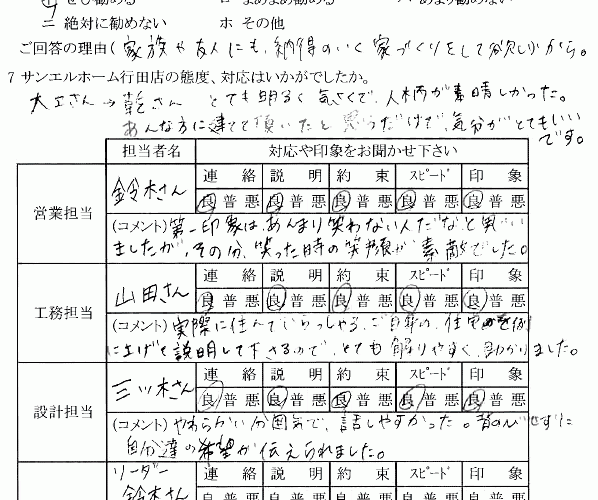 イ ぜひ勧める ロ まあまあ勧める ハ あまり勧めない
ニ 絶対に勧めない ホ その他
ご回答の理由(家族や友人にも、納得のいく家づくりをして欲しいから。
7 サンエルホーム行田店の態度、対応はいかがでしたか。
大工さん→乾さん とても明るく気さくで、人柄が素晴しかった。
あんな方に建てて頂いたと思うだけで、気分がとてもいい
です。
担当者名 対応や印象をお聞かせ下さい
営業担当 鈴木さん 連絡 説明 約束 スピード 印象
良普悪 良普悪 良普悪 良普悪 良普悪
(コメント)第一印象は、あんまり笑わない人だなと思い
ましたが、その分、笑った時の笑顔が素敵でした。
工務担当 山田さん 連絡 説明 約束 スピード 印象
良普悪 良普悪 良普悪 良普悪 良普悪
(コメント)実際に住んでいらっしゃる、ご自身の、住宅を例
に上げて説明して下さるので、とても解りやすく、助かりました。
設計担当 三ツ木さん 連絡 説明 約束 スピード 印象
良普悪 良普悪 良普悪 良普悪 良普悪
(コメント)やわらかい分囲気で、話しやすかった。背のびせずに
自分達の希望が伝えられました。
リーダー 連絡 説明 約束 スピード 印象
鈴木さん 良普悪 良普悪 良普悪 良普悪 良普悪